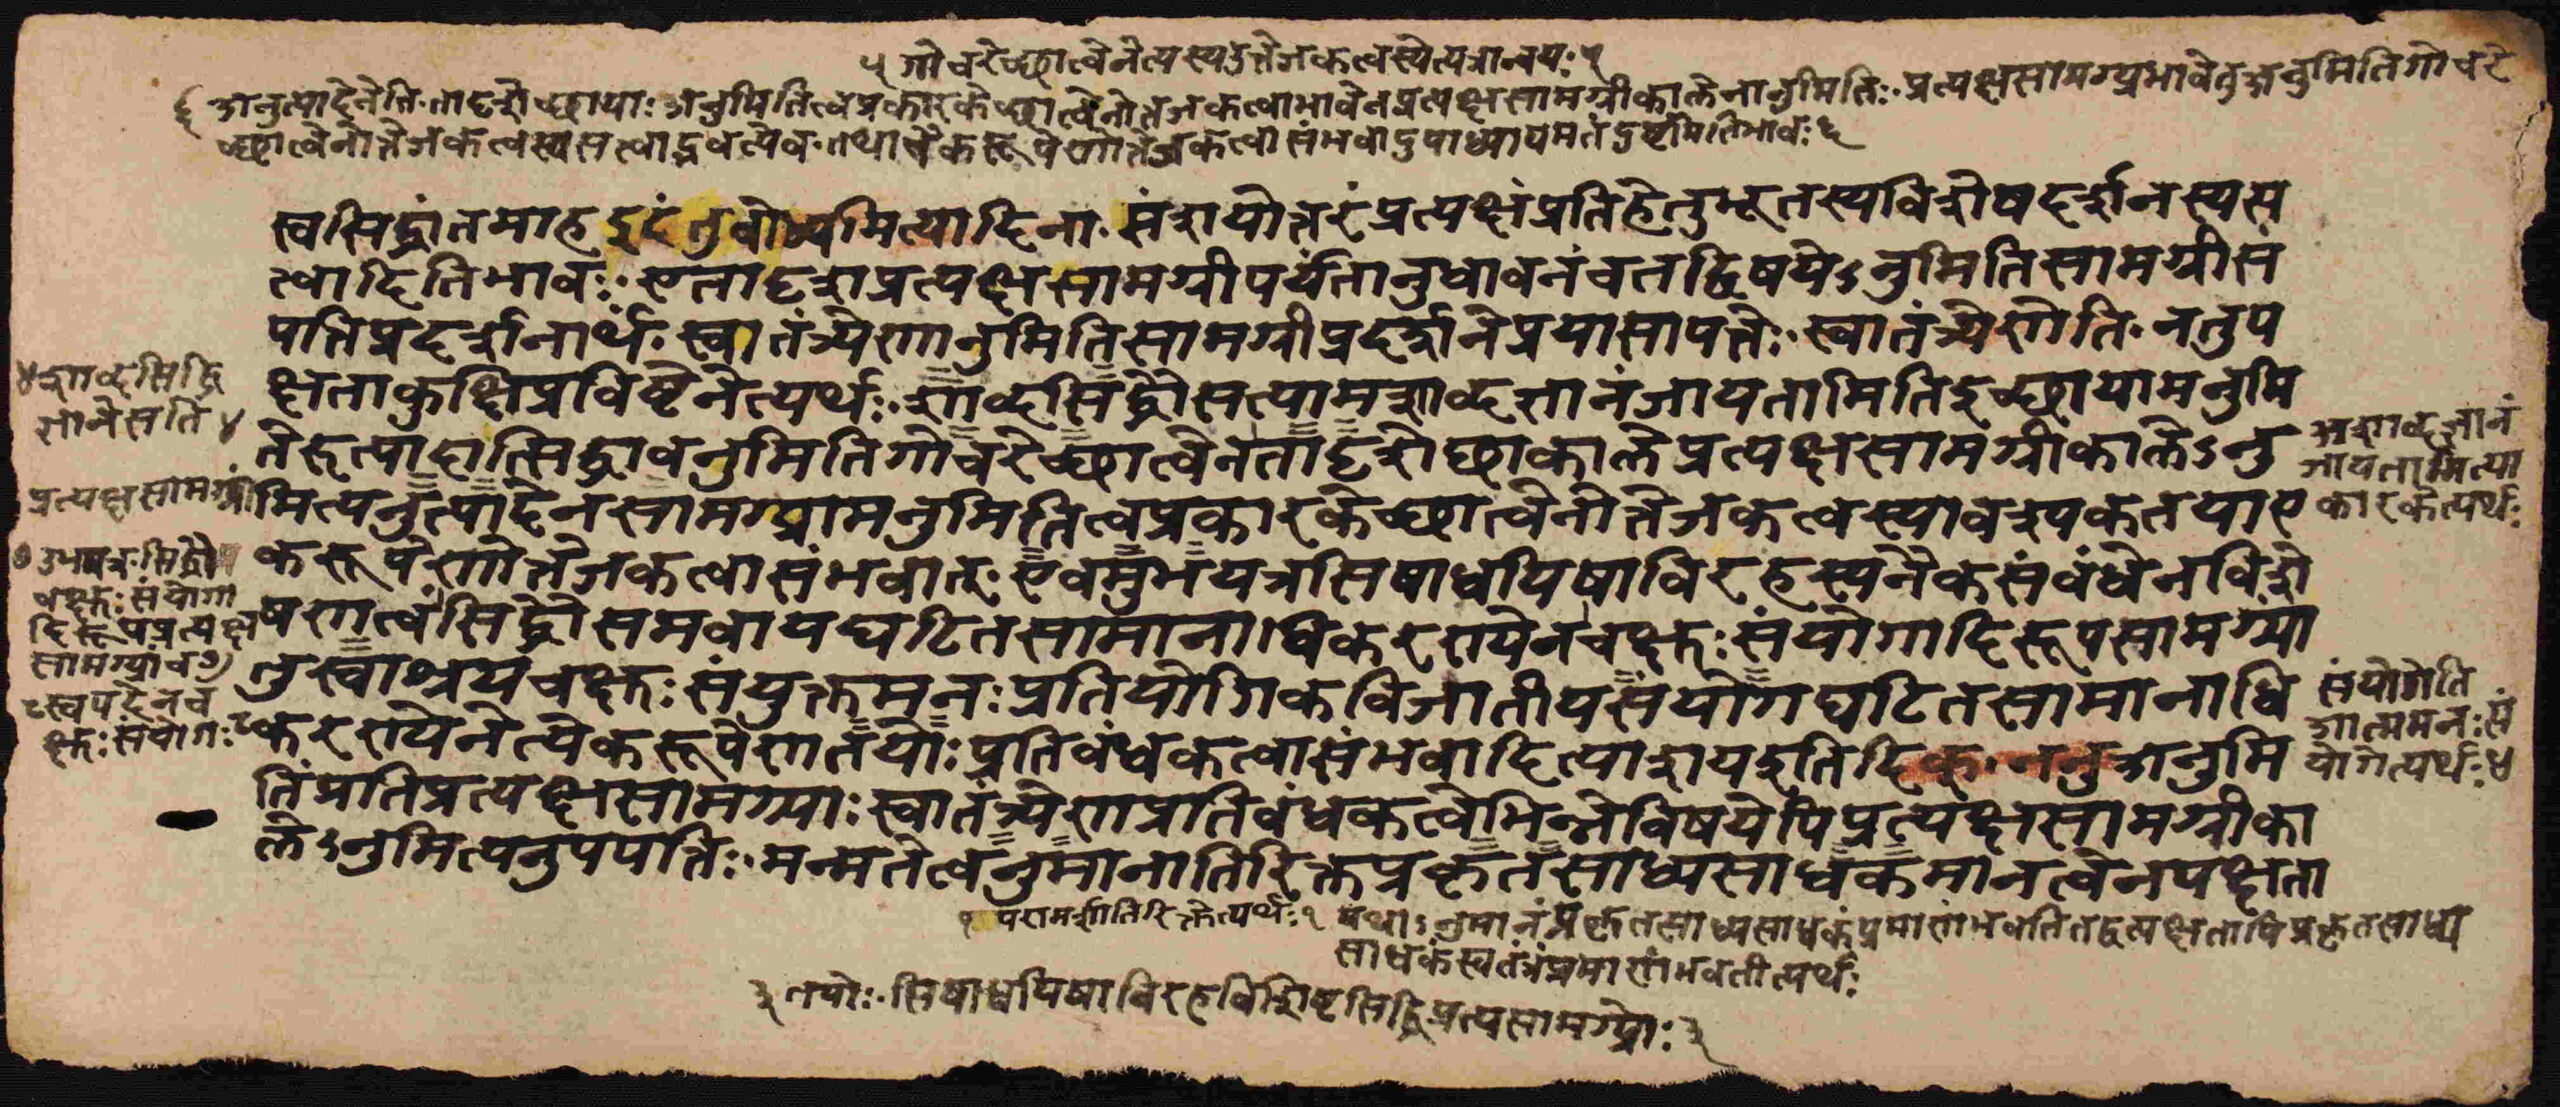 ५ गोचरेच्छात्वेनेत्यस्यउत्तेजकत्वस्येत्यत्रान्वयः ५
६ अनुत्पादेनेति तादृशेच्छायाः अनुमितित्वप्रकारकेच्छात्वेनोत्तेजकत्वाभावेनप्रत्यक्षसामग्रीकालेनानुमितिः प्रत्यक्षसामग्र्यभावेतुअनुमितिगोचरे
च्छात्वेनोत्तेजकत्वस्यसत्वाद्भवत्येव तथाचैकरूपेणोत्तेजकत्वासंभवादुपाध्यायमतंदुष्टमितिभावः ६
स्वसिद्धांतमाह इदंतुबोध्यमित्यादिना संशयोत्तरंप्रत्यक्षंप्रतिहेतुभूतस्यविशेषदर्शनस्यस
त्वादितिभावः एतादृशप्रत्यक्षसामग्रीपर्यंतानुधावनंचतद्विषयेऽनुमितिसामग्रीसं
पत्तिप्रदर्शनार्थं स्वातंत्र्येणानुमितिसामग्रीप्रदर्शनेप्रयासापत्तेः स्वातंत्र्येणेति नतुप
क्षताकुक्षिप्रविष्टेनेत्यर्थः शाब्दसिद्धौसत्यामशाब्दज्ञानंजायतामितिइच्छायामनुमि
तेरुत्पादात्सिद्धावनुमितिगोचरेच्छात्वेनतादृशेछाकालेप्रत्यक्षसामग्रीकालेऽनु
मित्यनुत्पादेनसामग्र्यामनुमितित्वप्रकारकेच्छात्वेनोत्तेजकत्वस्यावश्यकतयाए
करूपेणोत्तेजकत्वासंभवात् एवमुभयत्रसिषाधयिषाविरहस्यनैकसंबंधेनविशे
षणत्वंसिद्धौसमवायघटितसामानाधिकरण्येनचक्षुःसंयोगादिरूपसामग्र्यां
तुस्वाश्रयचक्षुःसंयुक्तमनःप्रतियोगिकविजातीयसंयोगघटितसामानाधि
करण्येनेत्येकरूपेणतयोःप्रतिबंधकत्वासंभवादित्याशयइतिदिक् ननुअनुमि
तिंप्रतिप्रत्यक्षसामग्र्याःस्वातंत्र्येणप्रतिबंधकत्वेभिन्नेविषयेपिप्रत्यक्षसामग्रीका
लेऽनुमित्यनुपपत्तिः मन्मतेत्वनुमानातिरिक्तप्रकृतसाध्यसाधकमानत्वेनपक्षता
४ शाब्दसिद्धि
ज्ञानेसति ४
प्रत्यक्षसामग्री
७ उभयत्र सिद्धौ
चक्षुःसंयोगा
दिरूपप्रत्यक्ष
सामग्र्यांच ७
८ स्वपदेनच
क्षुःसंयोगः ८
अशाब्दज्ञानं
जायतामित्या
कारकेत्यर्थः
संयोगेति
आत्ममनःसं
योगेत्यर्थः
१ परामर्शातिरिक्तेत्यर्थः १ यथाऽनुमानंप्रकृतसाध्यसाधकंप्रमाणंभवतितद्वत्पक्षतापिप्रकृतसाध्य
साधकंस्वतंत्रंप्रमाणंभवतीत्यर्थः
३ तयोः सिषाधयिषाविरहविशिष्टसिद्धिप्रत्यसामग्र्योः ३